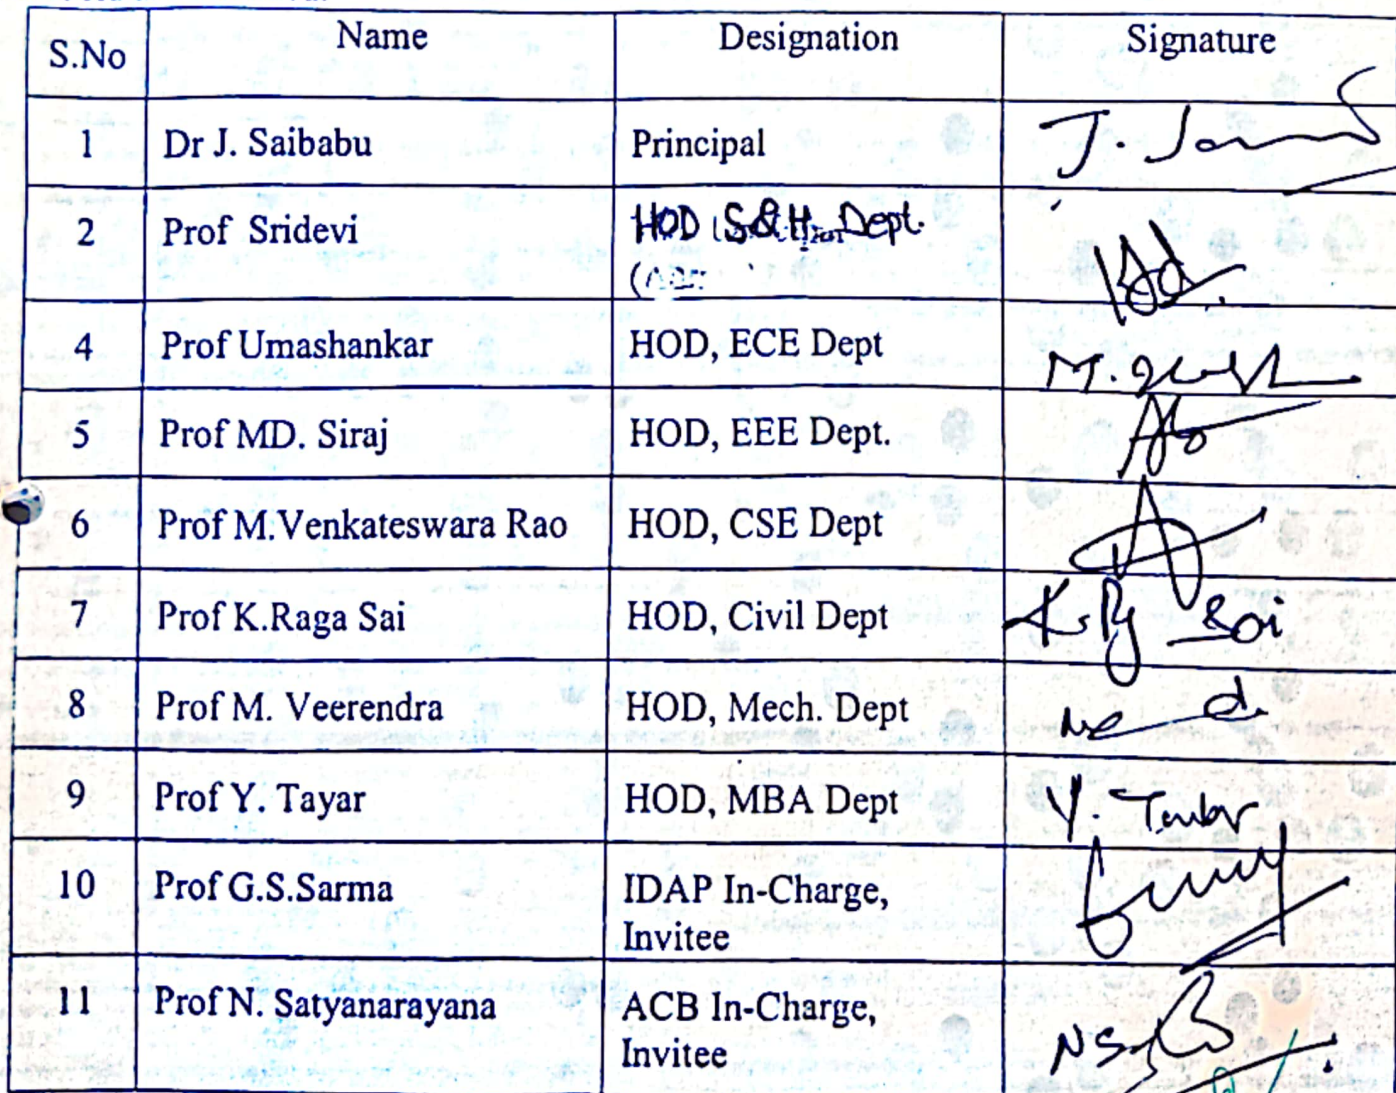 S.No Name Designation Signature
1 Dr J. Saibabu Principal
2 Prof Sridevi HOD S&H Dept.
4 Prof Umashankar HOD, ECE Dept
5 Prof MD. Siraj HOD, EEE Dept.
6 Prof M.Venkateswara Rao HOD, CSE Dept
7 Prof K.Raga Sai HOD, Civil Dept
8 Prof M. Veerendra HOD, Mech. Dept
9 Prof Y. Tayar HOD, MBA Dept
10 Prof G.S.Sarma IDAP In-Charge,
Invitee
11 Prof N. Satyanarayana ACB In-Charge,
Invitee